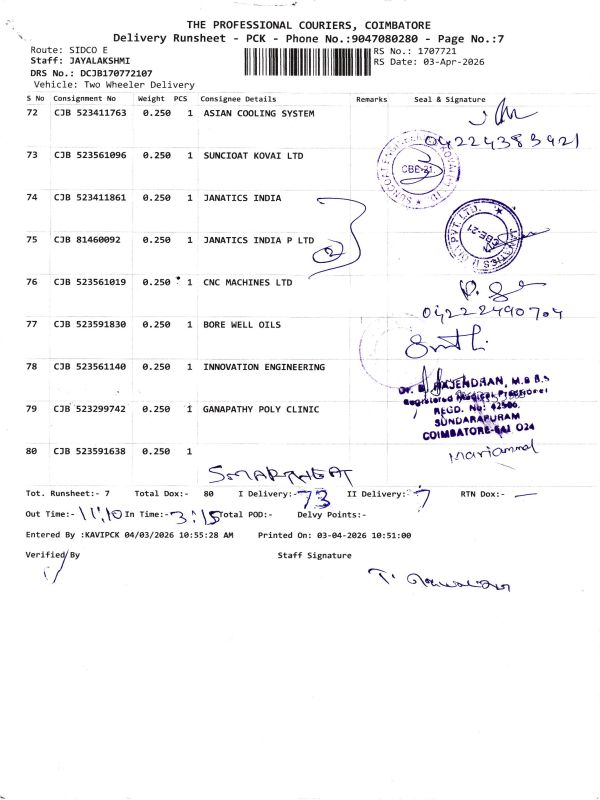 THE PROFESSIONAL COURIERS, COIMBATORE
Delivery Runsheet - PCK - Phone No.:9047080280 - Page No.:7
Route: SIDCO E
RS No.: 1707721
Staff: JAYALAKSHMI
RS Date: 03-Apr-2026
DRS No.: DCJB170772107
Vehicle: Two Wheeler Delivery
S No Consignment No Weight PCS Consignee Details Remarks Seal & Signature
72 CJB 523411763 0.250 1 ASIAN COOLING SYSTEM
04224383921
73 CJB 523561096 0.250 1 SUNCIOAT KOVAI LTD
CBE-21
74 CJB 523411861 0.250 1 JANATICS INDIA
75 CJB 81460092 0.250 1 JANATICS INDIA P LTD
CBE-21
76 CJB 523561019 0.250 1 CNC MACHINES LTD
04222490704
77 CJB 523591830 0.250 1 BORE WELL OILS
78 CJB 523561140 0.250 1 INNOVATION ENGINEERING
RAJENDRAN, M.B B.S
Registered Medical Practitioner
79 CJB 523299742 0.250 1 GANAPATHY POLY CLINIC
REGD. No: 42506
SUNDARAPURAM
COIMBATORE-641 024
80 CJB 523591638 0.250 1
Mariammal
SMARTHEAT
Tot. Runsheet:- 7 Total Dox:- 80 I Delivery:- 73 II Delivery:- 7 RTN Dox:- —
Out Time:- 11:10 In Time:- 3:15 Total POD:- Delvy Points:-
Entered By :KAVIPCK 04/03/2026 10:55:28 AM Printed On: 03-04-2026 10:51:00
Verified By Staff Signature